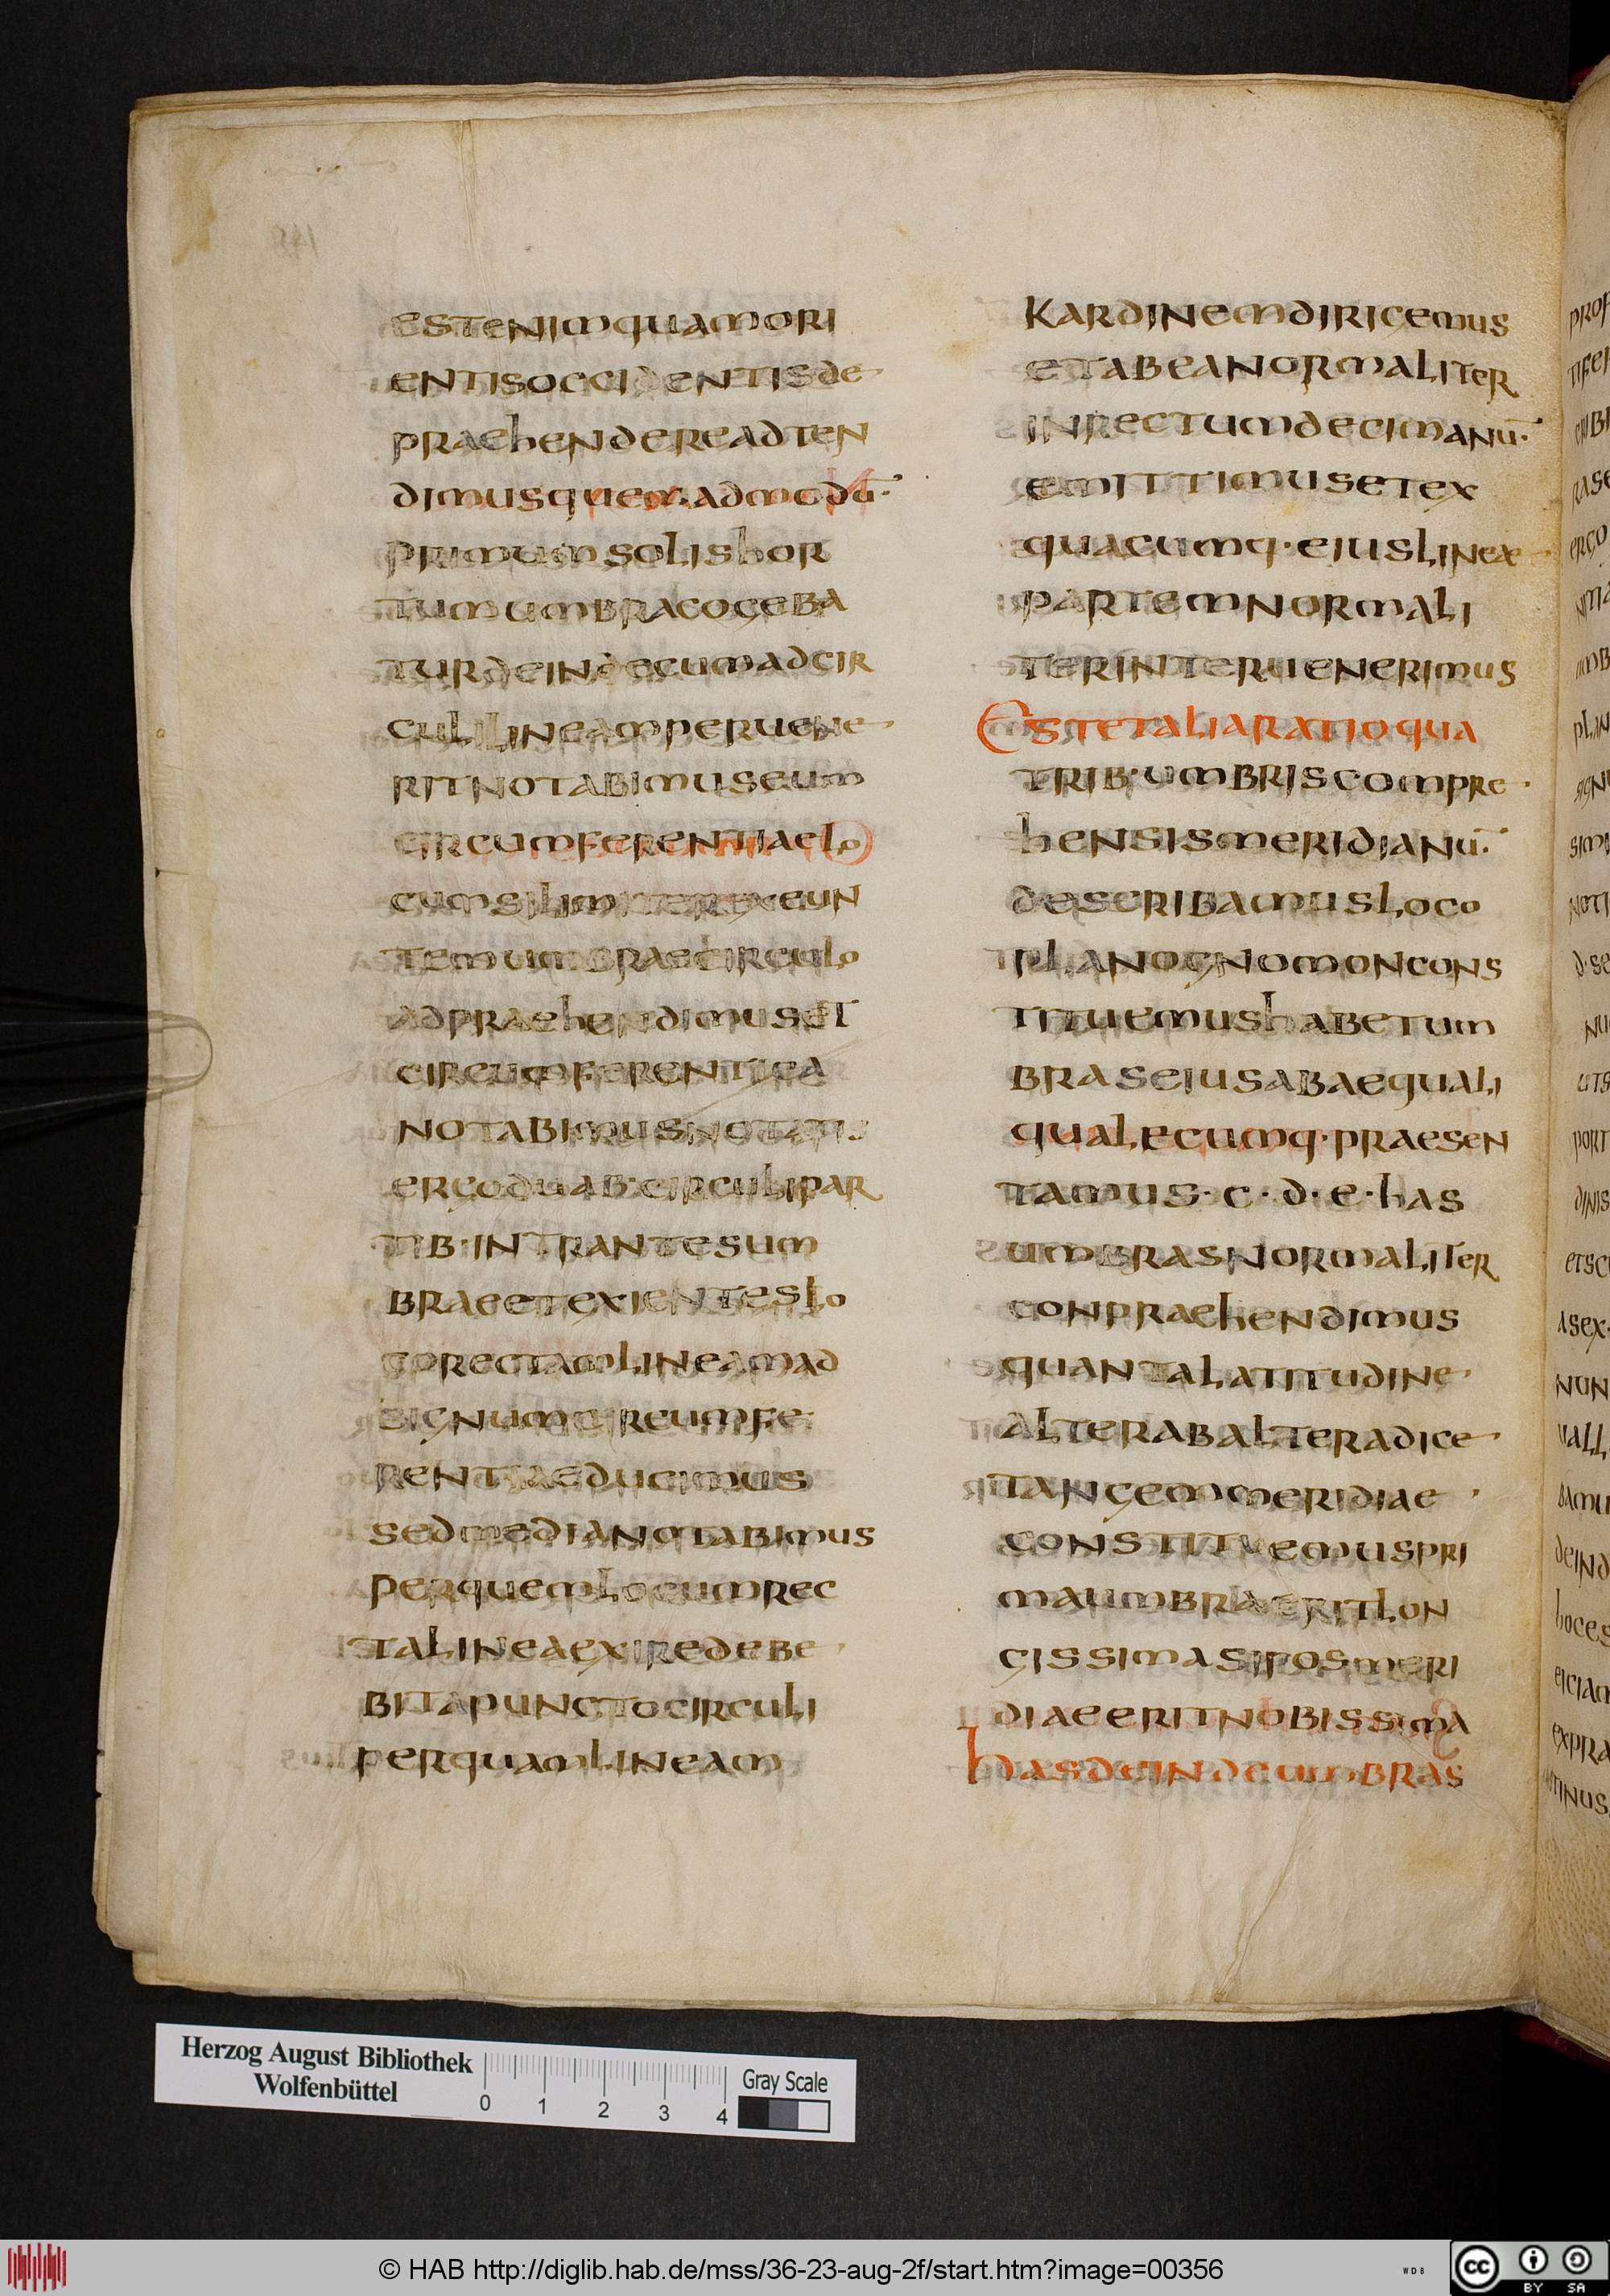 ESTENIMQUAMORI
ENTISOCCIDENTISDE
PRAEHENDEREADTEN
DIMUSQUEMADMODŪ·
PRIMUMSOLISHOR
TUMUMBRACOGEBA
TURDEINDECUMADCIR
CULILINEAMPERUENE
RITNOTABIMUSEUM
CIRCUMFERENTIAELO
CUMSILIMITEREXEUN
TEMUMBRAECIRCULO
ADPRAEHENDIMUSET
CIRCUMFERENTIEA
NOTABIMUSNOTATIS
ERGODUAB·CIRCULIPAR
TIB·INTRANTESUM
BRAEETEXIENTESLO
CORECTAMLINEAMAD
SIGNUMCIRCUMFE
RENTIAEDUCIMUS
SEDMEDIANOTABIMUS
PERQUEMLOCUMREC
TALINEAEXIREDEBE
BITAPUNCTOCIRCULI
PERQUAMLINEAM
KARDINEMDIRIGEMUS
ETABEANORMALITER
INRECTUMDECIMANŪ·
EMITTIMUSETEX
QUACUMQ·EIUSLINEAE
PARTEMNORMALI
TERINTERUENERIMUS
ESTETALIARATIOQUA
TRIB·UMBRISCOMPRE
HENSISMERIDIANŪ·
DESCRIBAMUSLOCO
PLANOGNOMONCONS
TITUEMUSHABETUM
BRASEIUSABAEQUALI
QUALECUMQ·PRAESEN
TAMUS·C·D·E·HAS
UMBRASNORMALITER
CONPRAEHENDIMUS
QUANTALATITUDINE
ALTERABALTERADICE
TANGEMMERIDIAE
CONSTITUEMUSPRI
MAUMBRAERITLON
GISSIMASIPOSMERI
DIAEERITNOBISSIMA
HASDEINDEUMBRAS
Herzog August Bibliothek
Wolfenbüttel
0 1 2 3 4
Gray Scale
© HAB http://diglib.hab.de/mss/36-23-aug-2f/start.htm?image=00356
WDB
CC BY SA